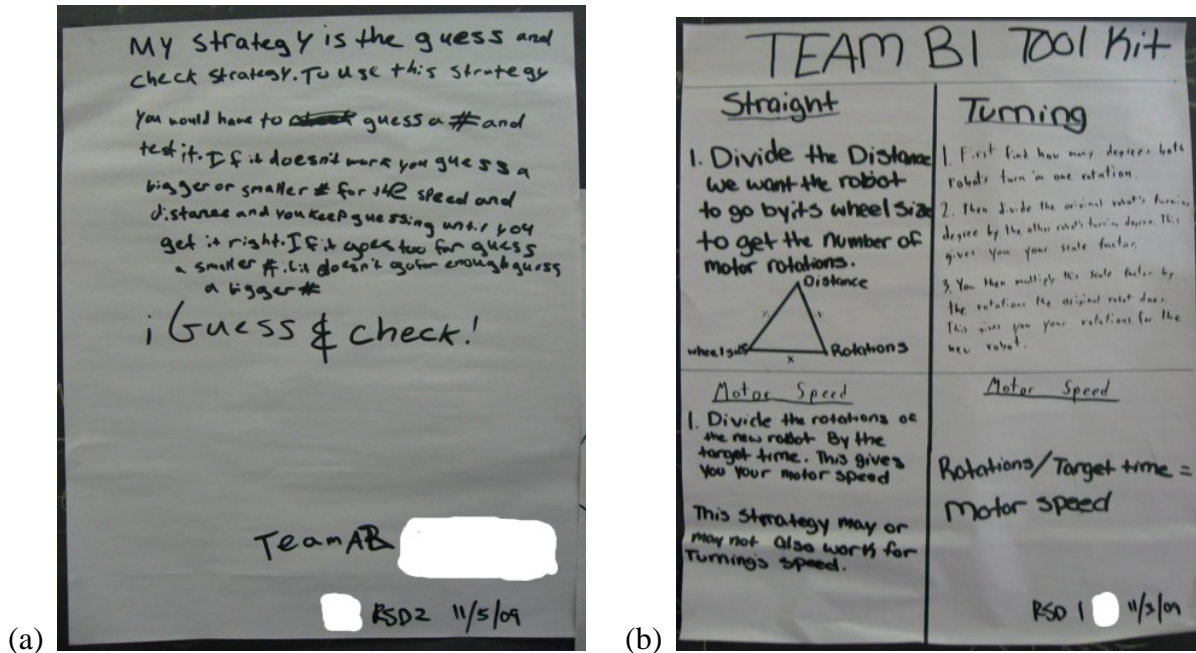 My strategy is the guess and
check strategy. To use this strategy
You would have to guess a # and
test it. If it doesn't work you guess a
bigger or smaller # for the speed and
distance and you keep guessing until you
get it right. If it goes too far guess
a smaller #. if it doesn't go far enough guess
a bigger #
¡Guess & check!
Team AB
RSD2 11/5/09
(a)
TEAM B1 TOOL Kit
Straight
1. Divide the Distance
we want the robot
to go by its wheel size
to get the number of
motor rotations.
Distance
wheel size
x
Rotations
Motor Speed
1. Divide the rotations of
the new robot By the
target time. This gives
You Your motor speed
This Strategy may or
may not also work for
Turning's speed.
Turning
1. First find how many degrees both
robots turn in one rotation.
2. Then divide the original robot's turning
degree by the other robot's turning degree. This
gives you your scale factor.
3. You then multiply this scale factor by
the rotations the original robot does.
This gives you your rotations for the
new robot.
Motor Speed
Rotations/Target time =
Motor speed
RSD 1 11/3/09
(b)